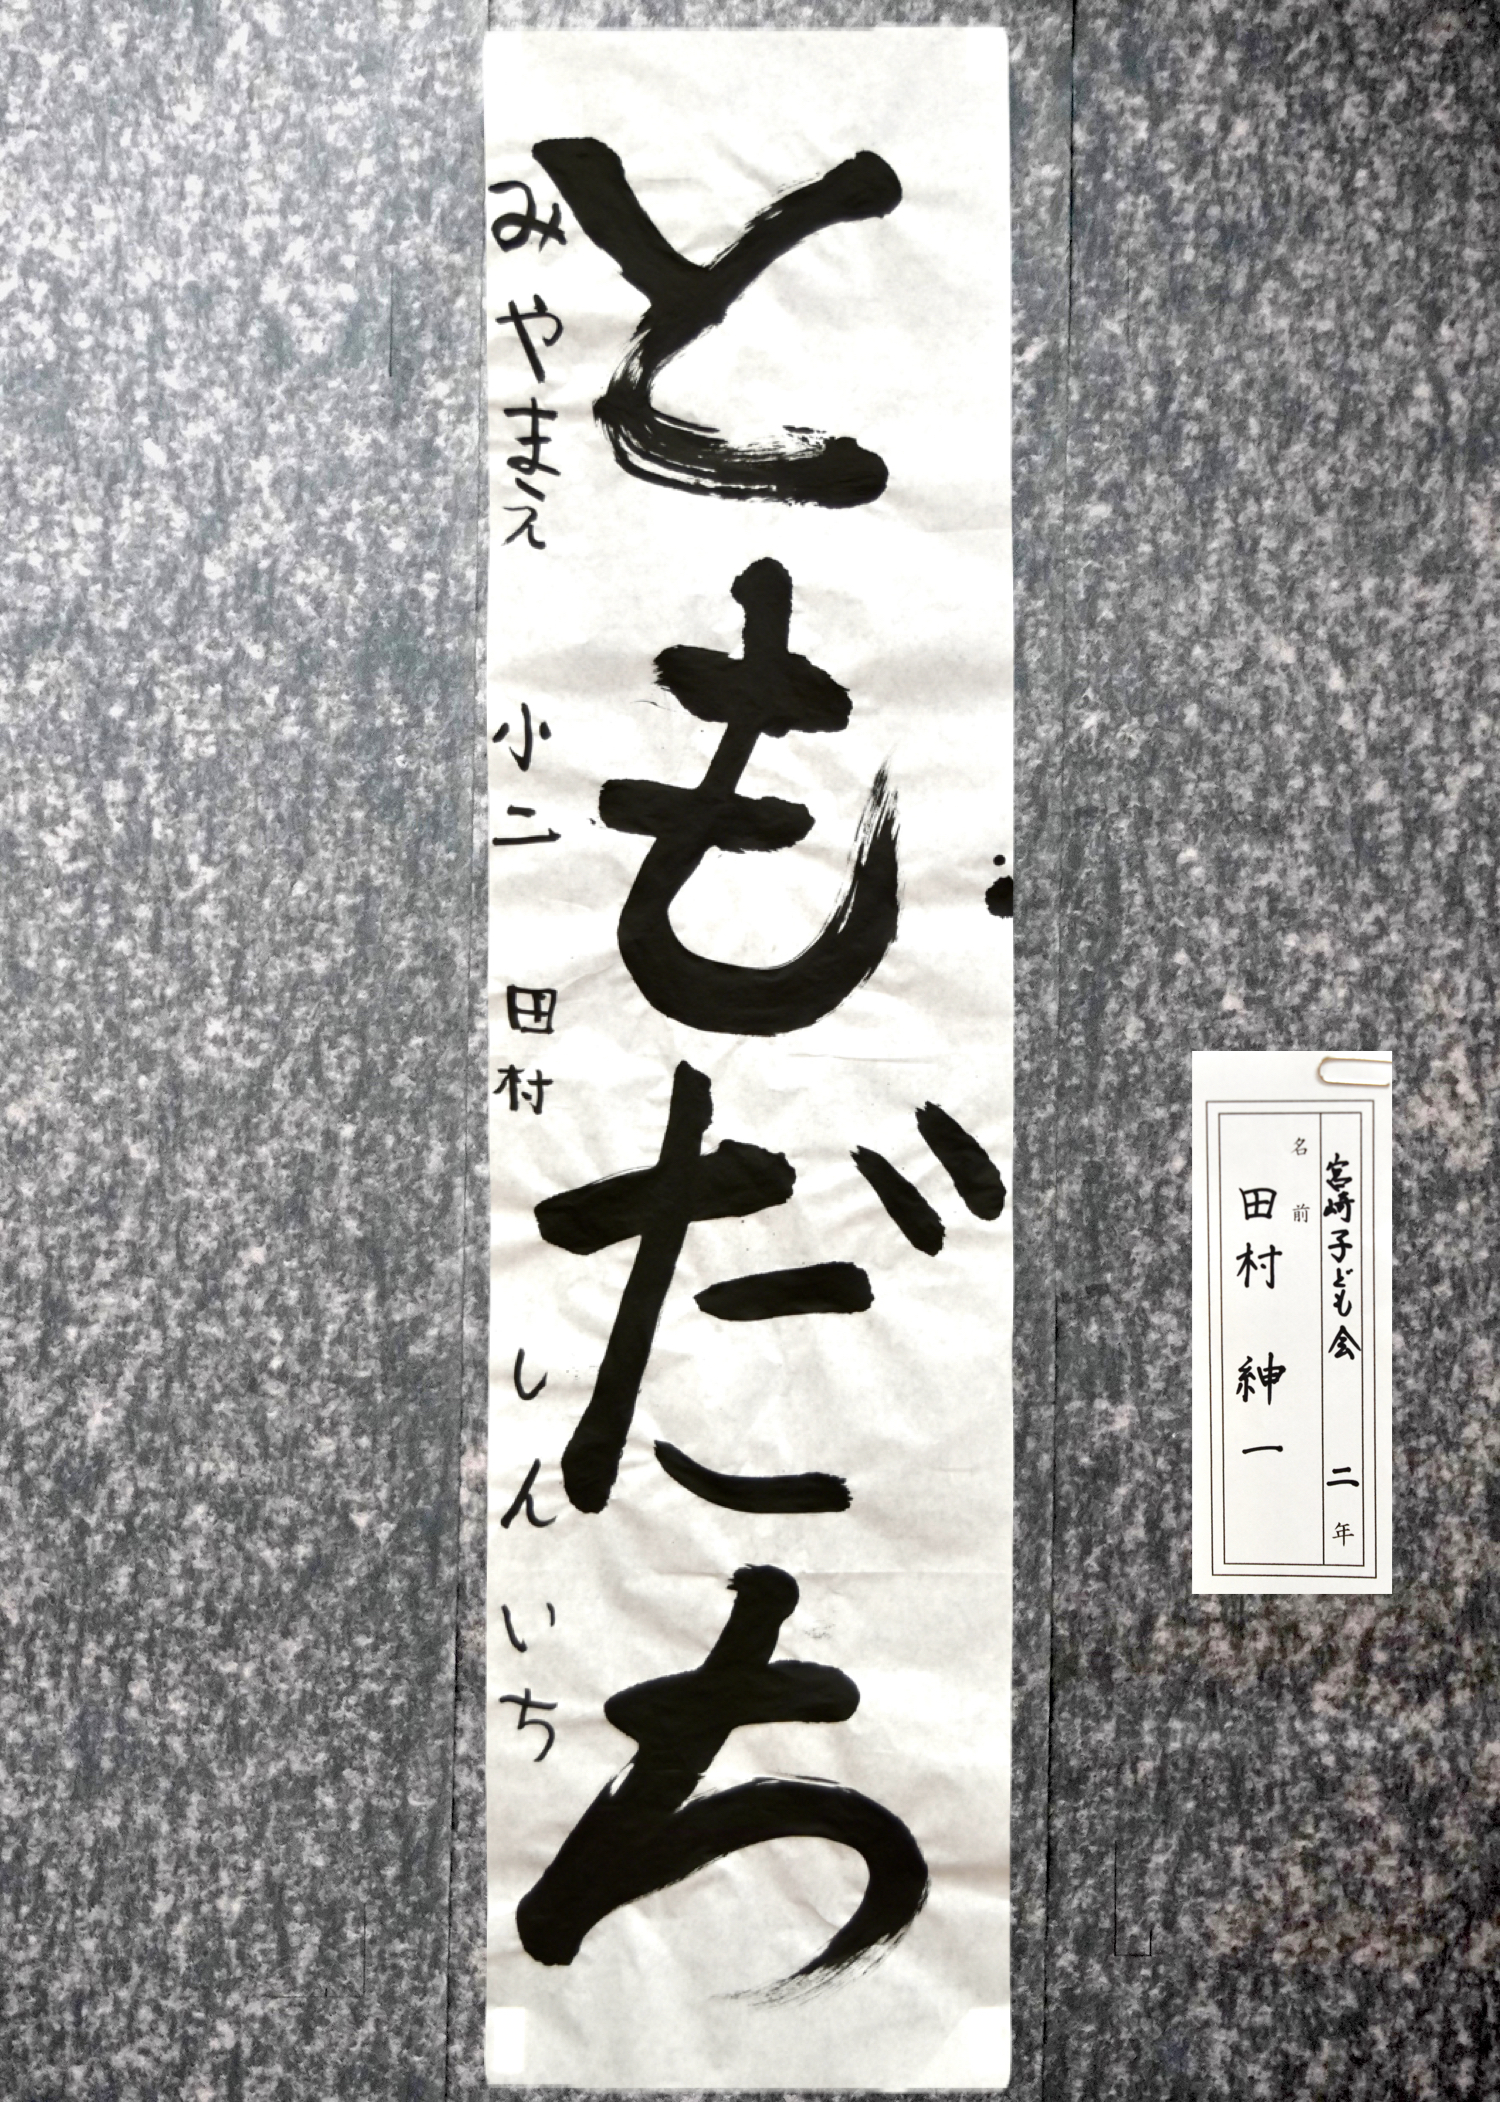 ともだち
みやまえ 小二 田村 しんいち
宮崎子ども会 二年
名前
田村 紳一